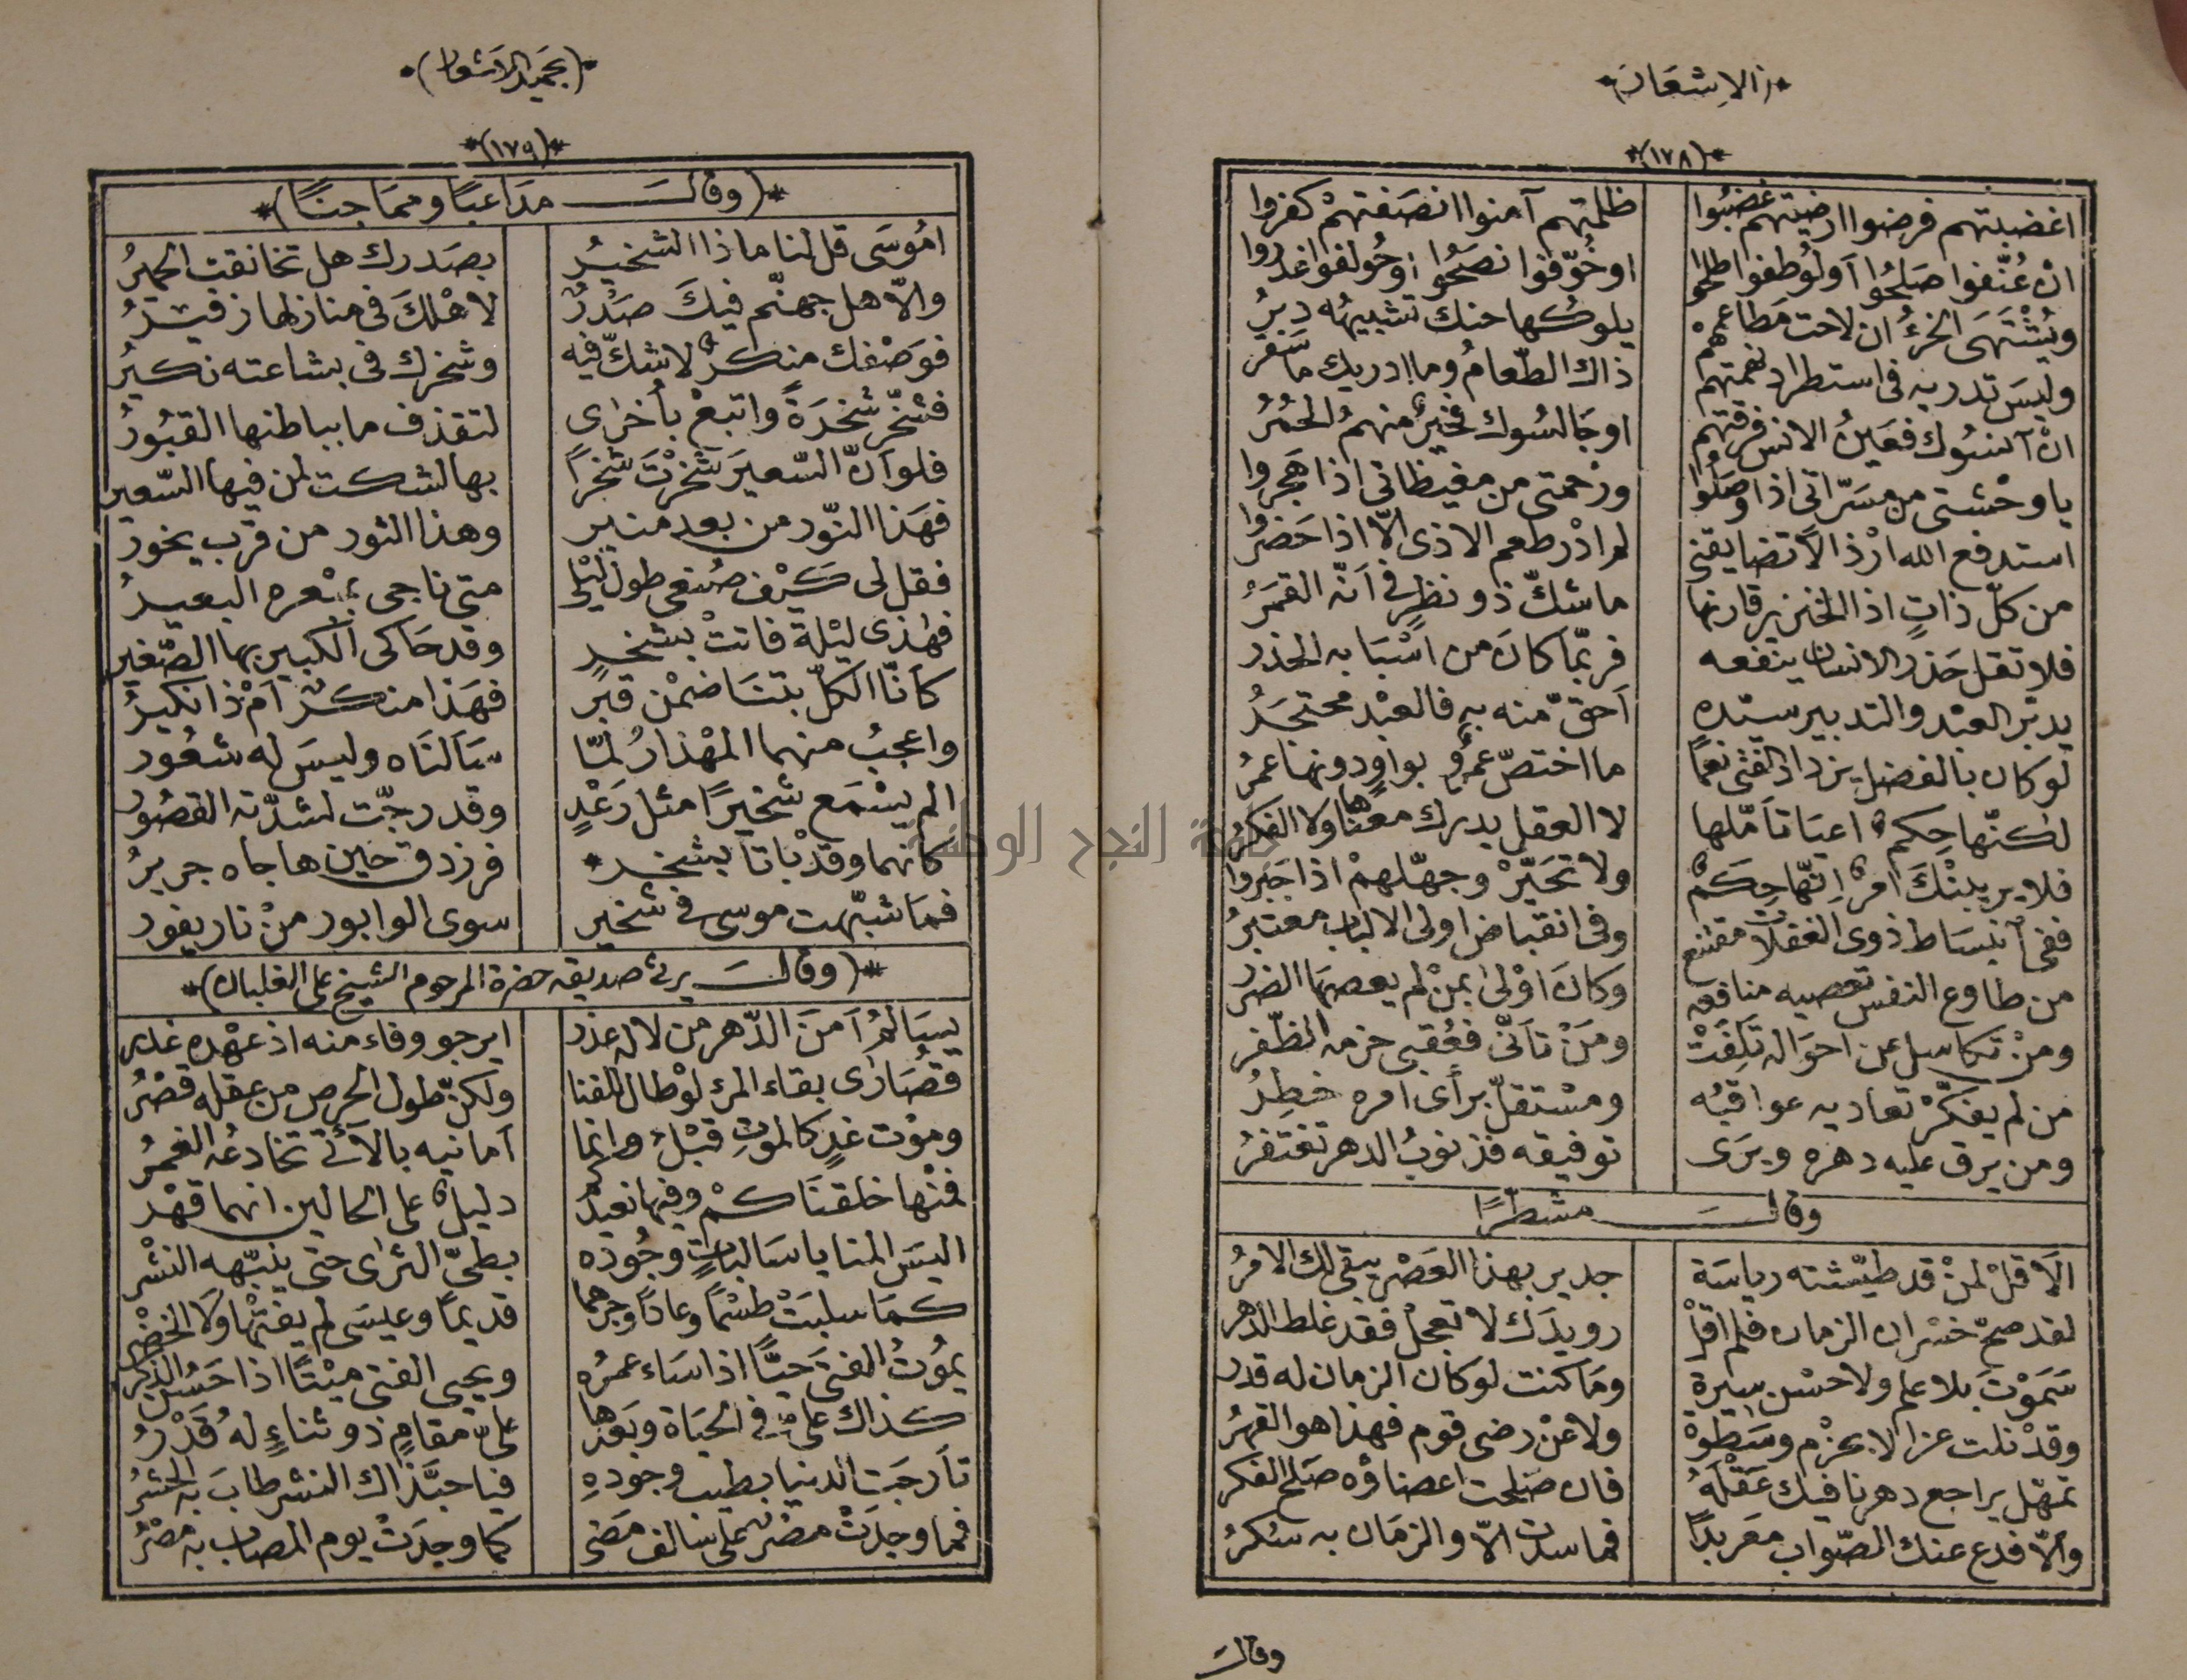 *(الاشعار)*
*(١٧٨)*
اغضبتهم فرضوا ارضيتهم غضبوا ظلمتهم آمنوا انصفتهم كفروا
ان عُنّفوا صلحُوا اولُوطفوا طلحوا اوخُوّفوا نصَحُوا اوحُولفوا غدروا
ويُشْتهَى الخرءُ ان لاحت مَطاعمهمْ يلوكُها حنك تشبيهُه دبرُ
وليسَ تدريه فى استطراد نهمتهم ذاك الطّعامُ وما ادريك ما سَقر
انْ آنسُوك ففَعَينُ الانس فرقتهم اوجَالسُوك فخيرٌ منهمُ الحُمُرُ
ياوحْشتى من مسَرّاتى اذا وصَلُوا ورحمتى من مغيظاتى اذا هَجروا
استدفع الله ارْذالاً تضايقنى لم ادْر طعم الاذى الّا اذا حَضرُوا
من كلّ ذاتٍ اذا الخنزير قارنها ماشكّ ذو نظرٍ فى اَنّه القمَرُ
فلا تقل حَذر الانسان ينفعه فربّما كانَ من اسْبَابه الحذر
يدبّر العبْد والتدبير سيّده اَحقّ منه بهِ فالعبْد محتجَرُ
لوكان بالفضل يزداد الفتى نعماً ما اختصّ عمرٌو بواوٍ دونها عمرُ
لكنّها حِكمٌ اعيَا تأمّلها لا العقل يدرك معناها ولا الفكرُ
فلا يريبنْكَ امرٌ اِنّها حِكَمٌ ولا تحَيّرْ وجهّلهمْ اذا جَبروا
ففى انبسَاط ذوى الغفلات مقتنع وفى انقباض اولى الالباب معتبرُ
من طاوع النفس تعصيه منافعه وكانَ اوْلى بمنْ لم يعصهَا الضرر
ومنْ تكاسل عن احوَاله تَلِفَتْ ومَنْ تأنّى فعُقبى حزمه الظّفر
من لم يفكّرْ تعاديه عواقبُه ومسْتقلّ برأى امره خطِرُ
ومن يرق عليه دهره ويرَى توفيقه فذنوبُ الدهر تغتفرُ
وقالـــ مشطرًا
الَا قلْ لمنْ قد طيّشته رياسَة جدير بهذا العَصْر يبقى لك الامرُ
لقد صحّ خسْران الزمان فلم اقلْ رويدَك لا تعجلْ فقد غلط الدهر
سَمَوْتَ بلا علم ولا حسْن سيرة ومَا كنت لوكان الزمان له قدر
وقدْ نلت عزا لا بحزْم وسَطوة ولا عنْ رضى قوم فهذا هو القهرُ
تمهّل يراجع دهرنا فيك عَقْلَهُ فان صَلحت اعضاؤه صَلح الفكر
والّا فدع عنك الصّواب معربدًا فما سدت الّا والزمَان به سُكرُ
وقال
*(بحميد الاشعار)*
*(١٧٩)*
*(وقالـــ مدَاعبًا ومماجنًا)*
امُوسَى قل لنا ماذا الشخيرُ بصَدرك هل تخانقت الحميرُ
والّا هل جهنّم فيكَ صَدْرٌ لاهْلكَ فى منازلها زفيرُ
فوَصْفك منكرٌ لاشكّ فيه وشخرك فى بشاعته نكيرُ
فشخّر شخرَةً واتبعْ بأخرى لتقذف ما بباطنها القبُورُ
فلو اَنّ السّعيرَ شَخرْتَ شخراً بها لشكت لمن فيها السّعير
فهَذا النّور من بعد منير وهذا الثور من قرب يخور
فقل لى كيْف صُنعى طول ليْلى متى ناجى بنعره البعيرُ
فهٰذى ليْلة فاتتْ بشخرٍ وقد حَاكى الكبير بها الصّغير
كأنّا الكلّ بتنَا ضمْن قبرٍ فهَذا منكرٌ اَمْ ذا نكيرُ
واعجبُ منهما المهْذارُ لمّا سَألنَاه وليسَ له شعُور
الم يسْمَع شخيرًا مثل رَعْدٍ وقد رجّت لشدّته القصُور
كأنهما وقدْ باتا بشخر فرزدق حين هاجاه جريرُ
فمَا شبّهت موسى فى شخير سوى الوابور منْ نار يفور
*(وقالـــ يرثى صديقه حضرة المرحوم الشيخ على الغلبان)*
يسَالمُ اَمنَ الدّهر من لاله عذر ايرجو وفاء منه اذ عهْده غدر
قصَارى بقاء المرء لوْ طال للفنا ولكنّ طول الحرص من عقله قصْرُ
وموْت غدٍ كالموتِ قبْلُ وانما اَمانيه بالآتى تخادعُه الغمرُ
فمنْها خلقنَاكمْ وفيها نعيدكم دليلٌ على الحالين انهما قهْر
اليسَ المنايا سَالباتٍ وجُوده بطىّ الثرى حتى ينبّهه النشْر
كمَا سلبَتْ طسْماً وعاداً وجرهما قديماً وعيسَى لم يفتها ولا الخضْر
يمُوتُ الفتى حيًّا اذا سَاء عمرُه ويحيى الفتى ميْتًا اذا حَسُن الذّكرُ
كذاك علىّ فى الحيَاة وبَعْدها علىّ مقامٍ ذو ثناءٍ لهُ قَدْرُ
تأرجَت الدنيا بطيب وجودهِ فيا حبّذاك النشر طابَ به الحشرُ
فما وجدَتْ مضر على سالف مَضى كما وجدَتْ يوم المصاب به مصْرُ
جامعة النجاح الوطنية